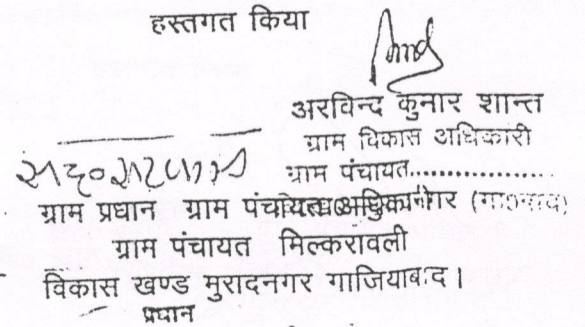 हस्तगत किया
अरविन्द कुमार शान्त
ग्राम विकास अधिकारी
ग्राम पंचायत..................
ग्राम प्रधान ग्राम पंचायत
ग्राम पंचायत मिल्करावली
विकास खण्ड मुरादनगर गाजियाबाद।
प्रधान